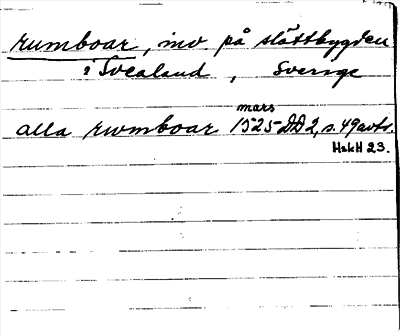 rumboar, inv. på slättbygden
i Svealand, Sverige
mars
alla rwmboar 1525 DD2, s. 49 avtr.
HskH 23.